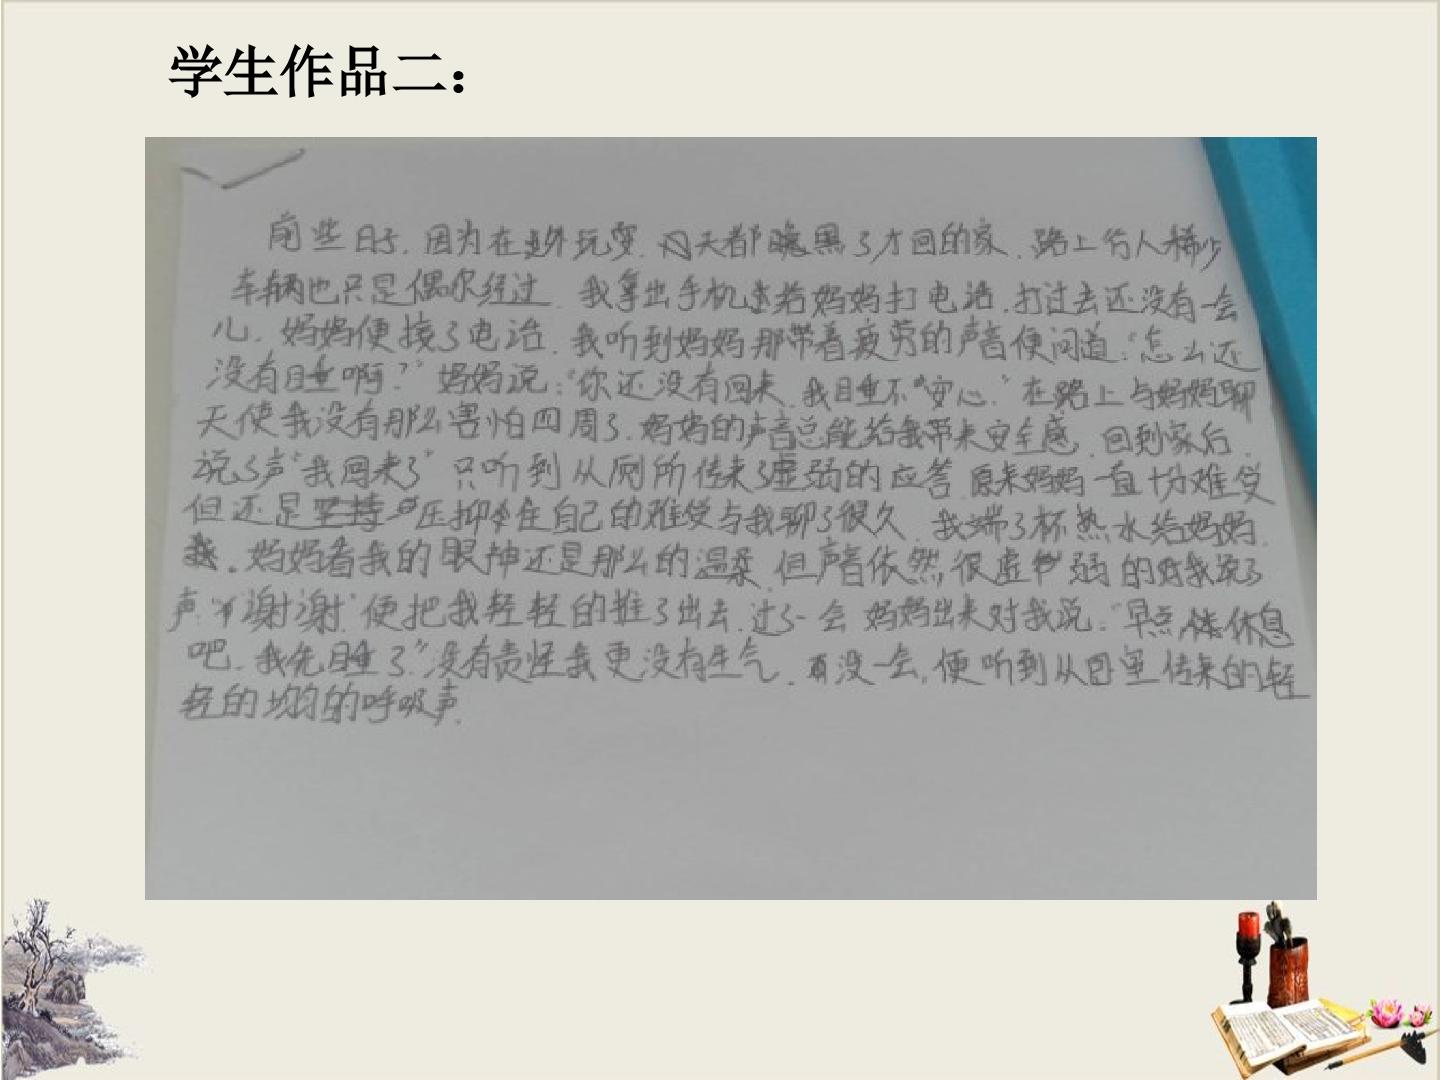 学生作品二：
前些日子，因为在外玩耍，每天都晚黑了才回的家，路上行人稀少
车辆也只是偶尔经过，我拿出手机给妈妈打电话，打过去还没有一会
儿，妈妈便接了电话，我听到妈妈那带着疲劳的声音便问道：“怎么还
没有睡啊？”妈妈说：“你还没有回来，我睡不安心。”在路上与妈妈聊
天使我没有那么害怕四周了，妈妈的声音总能给我带来安全感，回到家后，
说了声“我回来了”只听到从厕所传来了虚弱的应答，原来妈妈一直十分难受
但还是压抑住自己的难受与我聊了很久，我端了杯热水给妈妈，
妈妈看我的眼神还是那么的温柔，但声音依然很虚弱的对我说了
声“谢谢”便把我轻轻的推了出去，过了一会妈妈出来对我说：“早点休息
吧，我先睡了”没有责怪我更没有生气，再没一会，便听到从卧室传来的轻
轻的均匀的呼吸声。